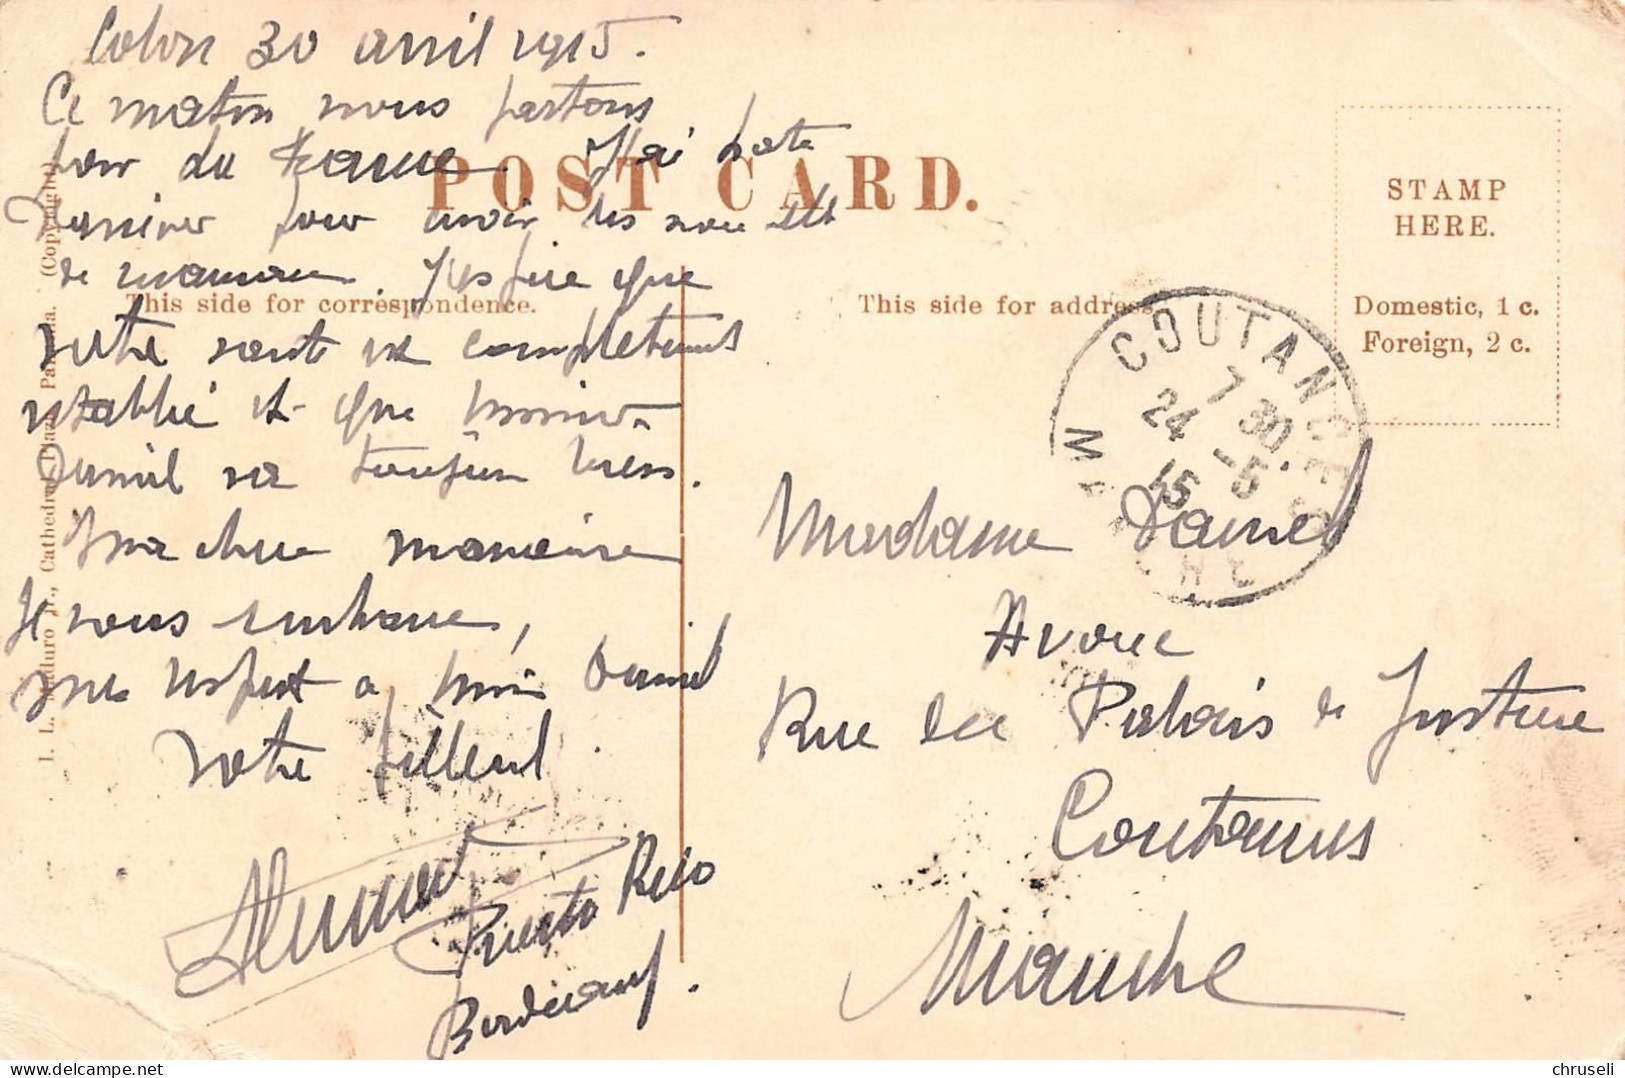 Colon 30 avril 1915.
Ce matin nous partons
pour du
J'ai hate
d'arriver pour avoir des nouvelles
de maman. J'espere que
votre sante est completement
retablie et que
Daniel va toujours bien.
Ma chere marraine
Je vous embrasse,
mes respect a Daniel
Votre filleul.
Puerto Rico
Bordeaux.
POST CARD.
This side for correspondence.
This side for address.
STAMP
HERE.
Domestic, 1 c.
Foreign, 2 c.
COUTANCES
7 30
24 -5
15
MANCHE
Madame Daniel
Avoué
Rue du Palais de Justice
Coutances
Manche
I. L. Maduro Jr., Cathedral Plaza, Panama. (Copyright)
delcampe.net
chruseli